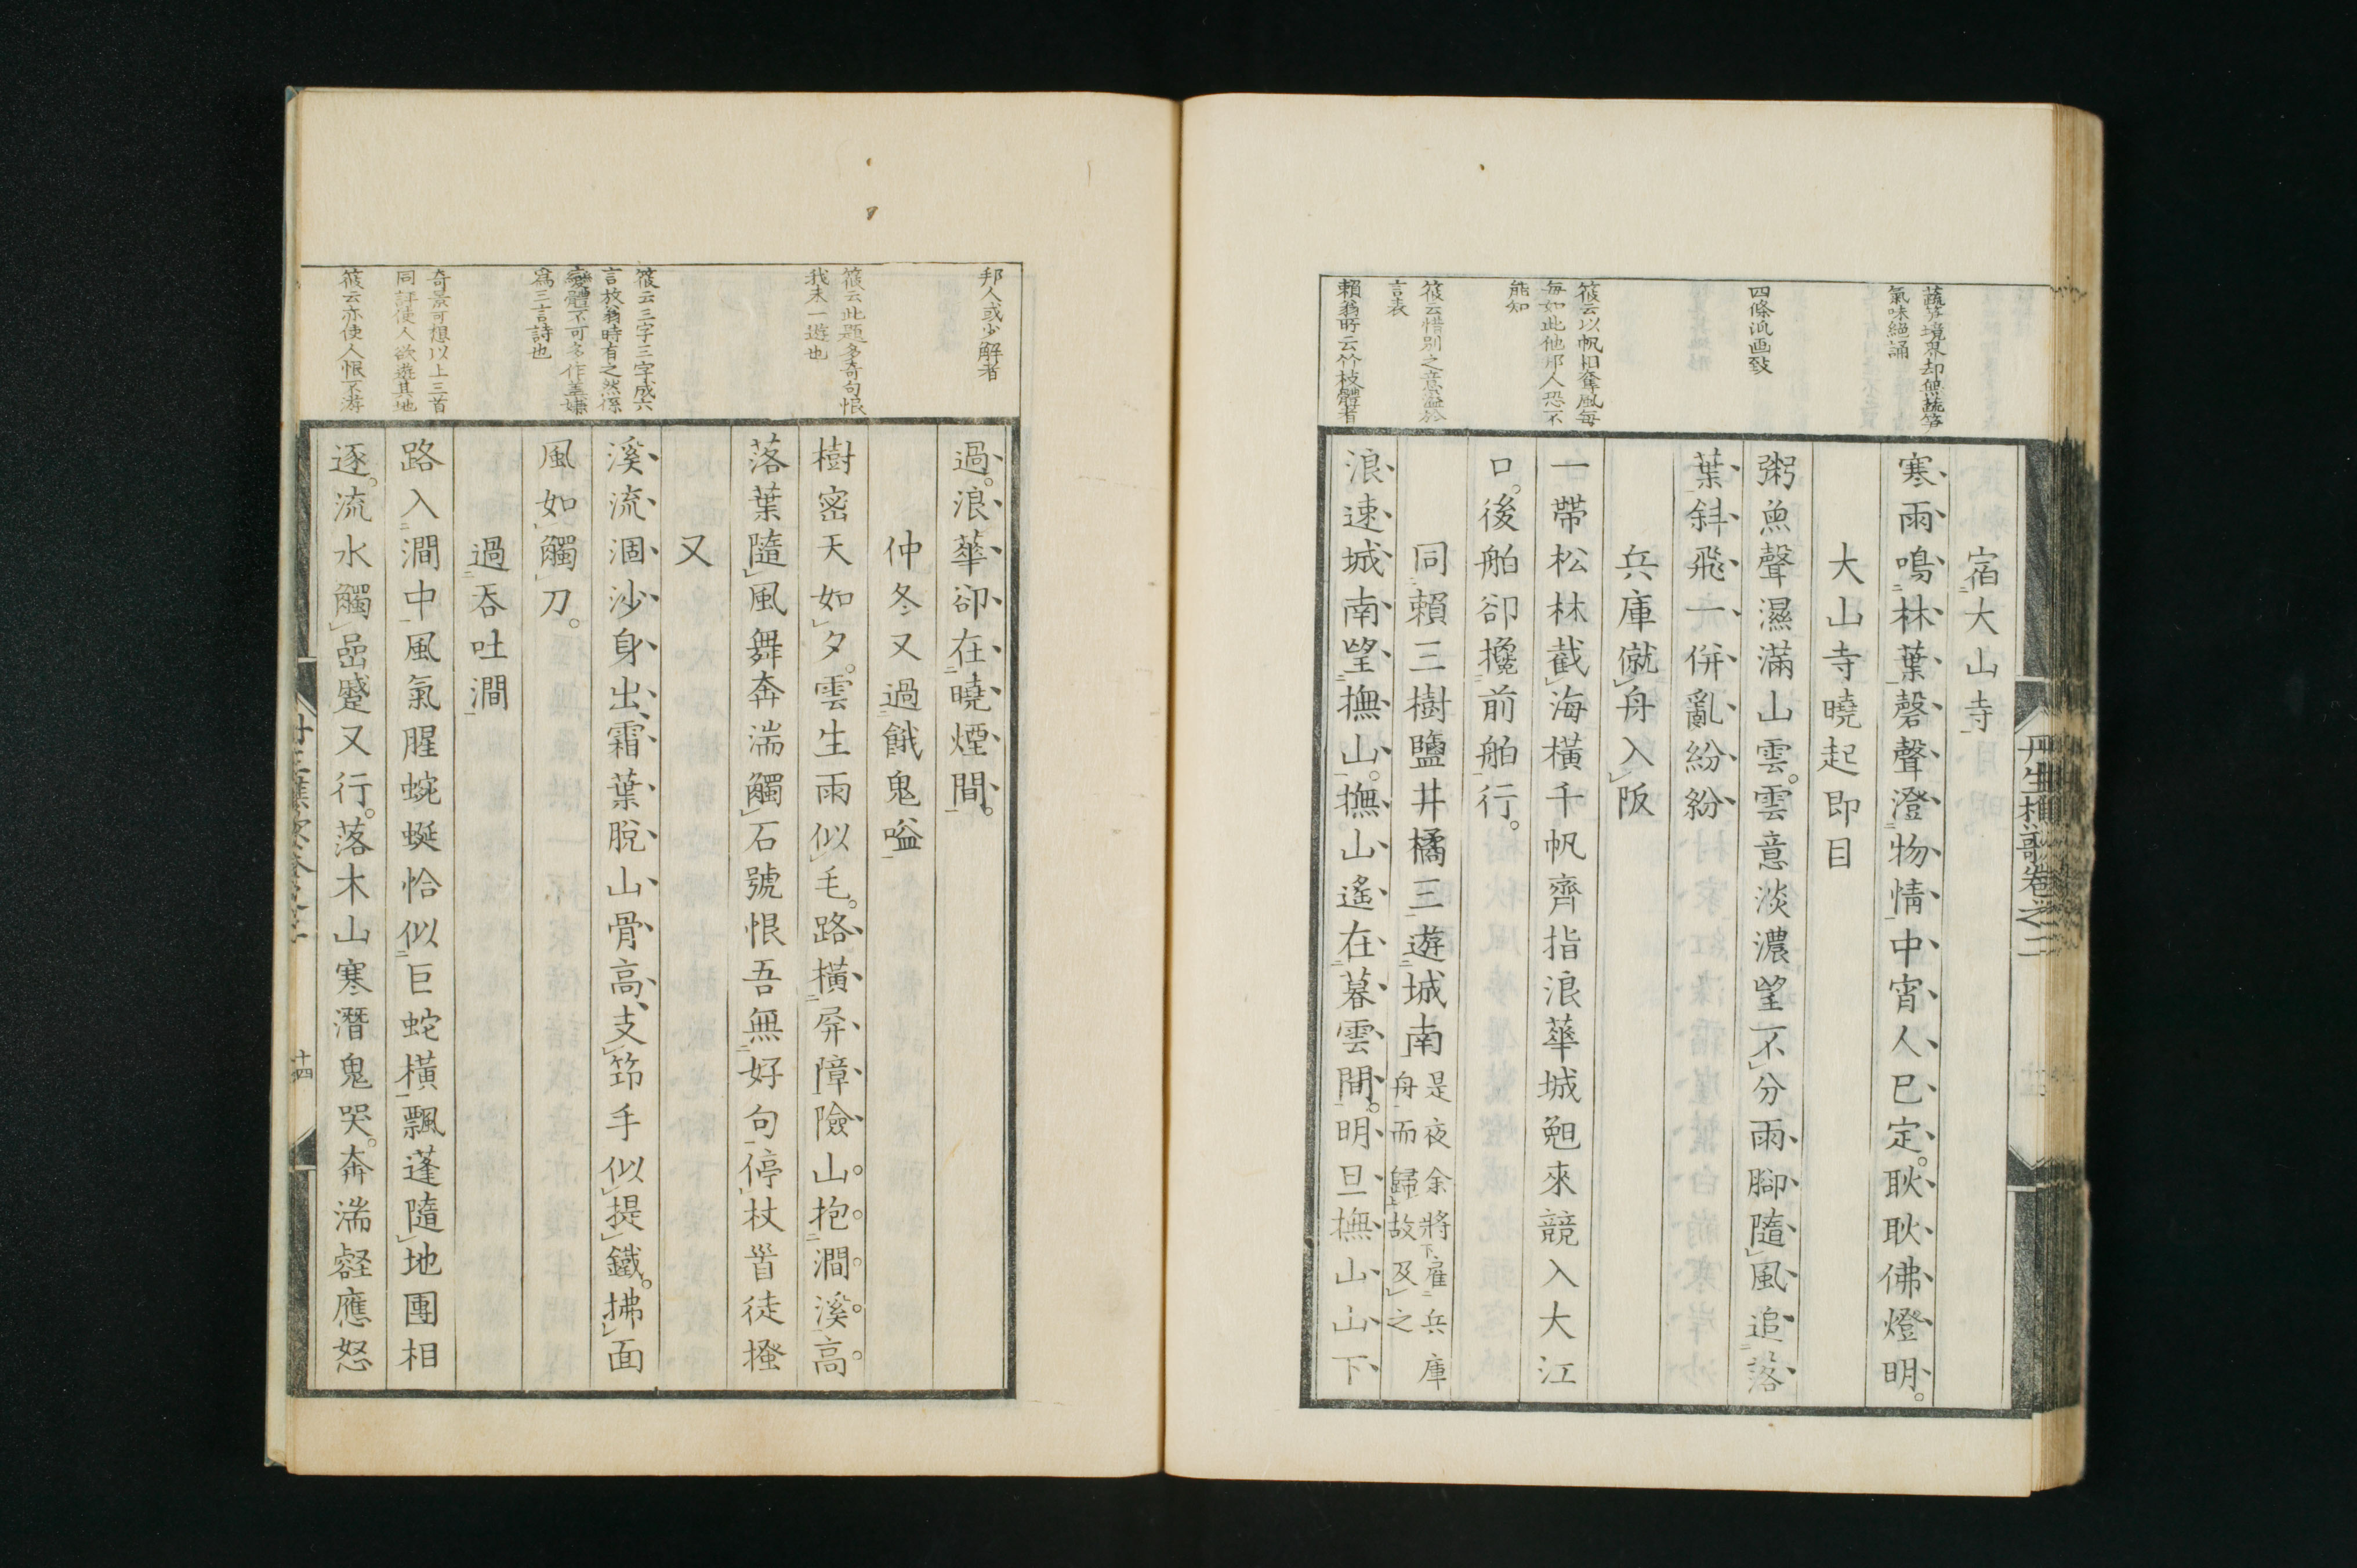 蔬笋境界却無蔬笋
氣味絕誦
四條派画致
筱云以帆相奪風每
每如此他邦人恐不
能知
筱云惜別之意溢於
言表
賴翁所云竹枝體者
宿大山寺
寒雨鳴林葉磬聲澄物情中宵人已定。耿耿佛燈明。
大山寺曉起即目
粥魚聲濕滿山雲。雲意淡濃望不分雨腳隨風追落
葉斜飛一併亂紛紛
兵庫僦舟入阪
一帶松林截海橫千帆齊指浪華城飽來競入大江
口。後舶卻攙前舶行。
同賴三樹鹽井橘三遊城南
是夜余將雇兵庫
舟而歸故及之
浪速城南望撫山。撫山遙在暮雲間。明旦撫山山下
丹生樵歌卷之二
邦人或少解者
筱云此題多奇句恨
我未一遊也
筱云三字三字成六
言放翁時有之然係
變體不可多作盖嫌
爲三言詩也
奇景可想以上三首
同評使人欲遊其地
筱云亦使人恨不游
過。浪華卻在曉煙間。
仲冬又過餓鬼嗌
樹密天如夕。雲生雨似毛。路橫屏障險山抱澗溪高
落葉隨風舞奔湍觸石號恨吾無好句停杖首徒搔
又
溪流涸沙身出霜葉脫山骨高支筇手似提鐵。拂面
風如觸刀。
過吞吐澗
路入澗中風氣腥蜿蜒恰似巨蛇橫飄蓬隨地團相
逐。流水觸嵒蹙又行。落木山寒潛鬼哭。奔湍壑應怒
十四